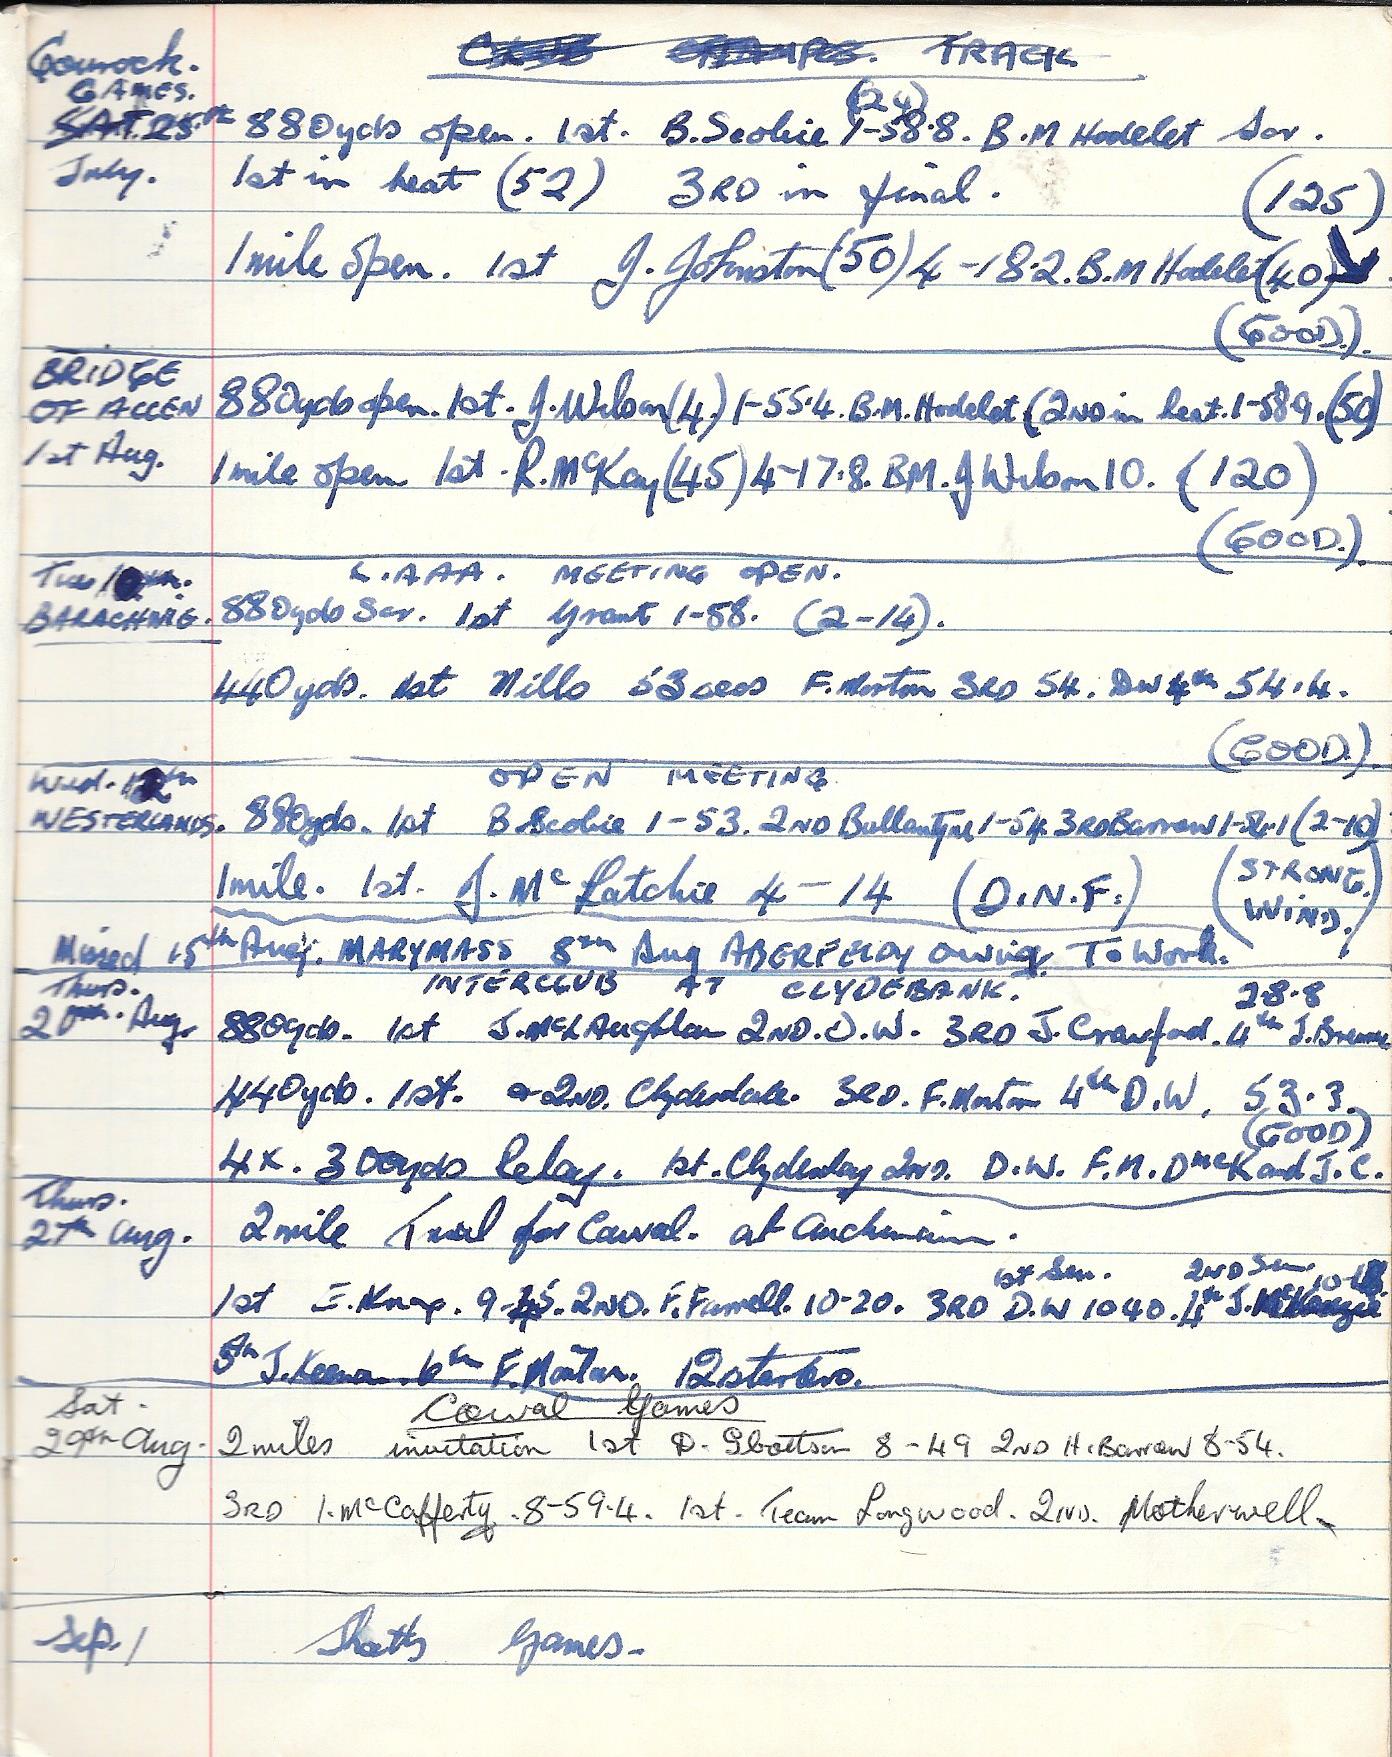 TRACK
Gourock.
GAMES.
SAT. 25th 880yds open. 1st. B. Scobie (24) 1-58.8. B.M Hodelet Scr.
July. 1st in heat (52) 3RD in final. (125)
1 mile open. 1st J. Johnston (50) 4-18.2. B.M Hodelet (40)
(GOOD.).
BRIDGE
OF ALLEN 880yds open. 1st. J. Wilson (4.) 1-55.4. B.M. Hodelet. (2ND in heat. 1-58.9. (50)
1st Aug. 1 mile open 1st. R. McKay (45) 4-17.8. BM. J Wilson 10. (120)
(GOOD.)
Tues L.A.A.A. MEETING OPEN.
BARACHNIE. 880yds Scr. 1st Grant 1-58. (2-14).
440yds. 1st Mills 53 secs F. Morton 3RD 54. DW 4th 54.4.
(GOOD.)
Wed. 12th OPEN MEETING
WESTERLANDS. 880yds. 1st B. Scobie 1-53. 2ND Ballantyne 1-54 3RD Barrow 1-54.1 (2-10)
1 mile. 1st. J. McLatchie 4-14 (D.N.F.) (STRONG WIND.)
Missed 15th Aug. MARYMASS 8TH Aug ABERFELDY owing To Work.
Thurs. INTERCLUB AT CLYDEBANK. 2.8.8
20th. Aug. 880yds. 1st J. McLAughlan 2ND. D.W. 3RD J. Crawford. 4th J. Brennan
440yds. 1st. & 2ND. Clydesdale. 3RD. F. Morton 4th D.W. 53.3.
(GOOD)
4x. 300yds Relay. 1st. Clydesday 2ND. D.W. F.M. D McK and J.C.
Thurs.
27th Aug. 2 mile Trial for Cowal. at
1st Sen. 2ND Sen.
1st E. Knox. 9-45. 2ND. F. Farrell. 10-20. 3RD D.W 10 40. 4th J. McKenzie
5th J. Keenan. 6th F. Morton. 12 starters.
Sat. Cowal Games
29th Aug. 2 miles invitation 1st D. Ibbotson 8-49 2ND H. Barrow 8-54.
3RD I. McCafferty. 8-59.4. 1st. Team Longwood. 2ND. Motherwell
Sep. 1 Shotts Games-